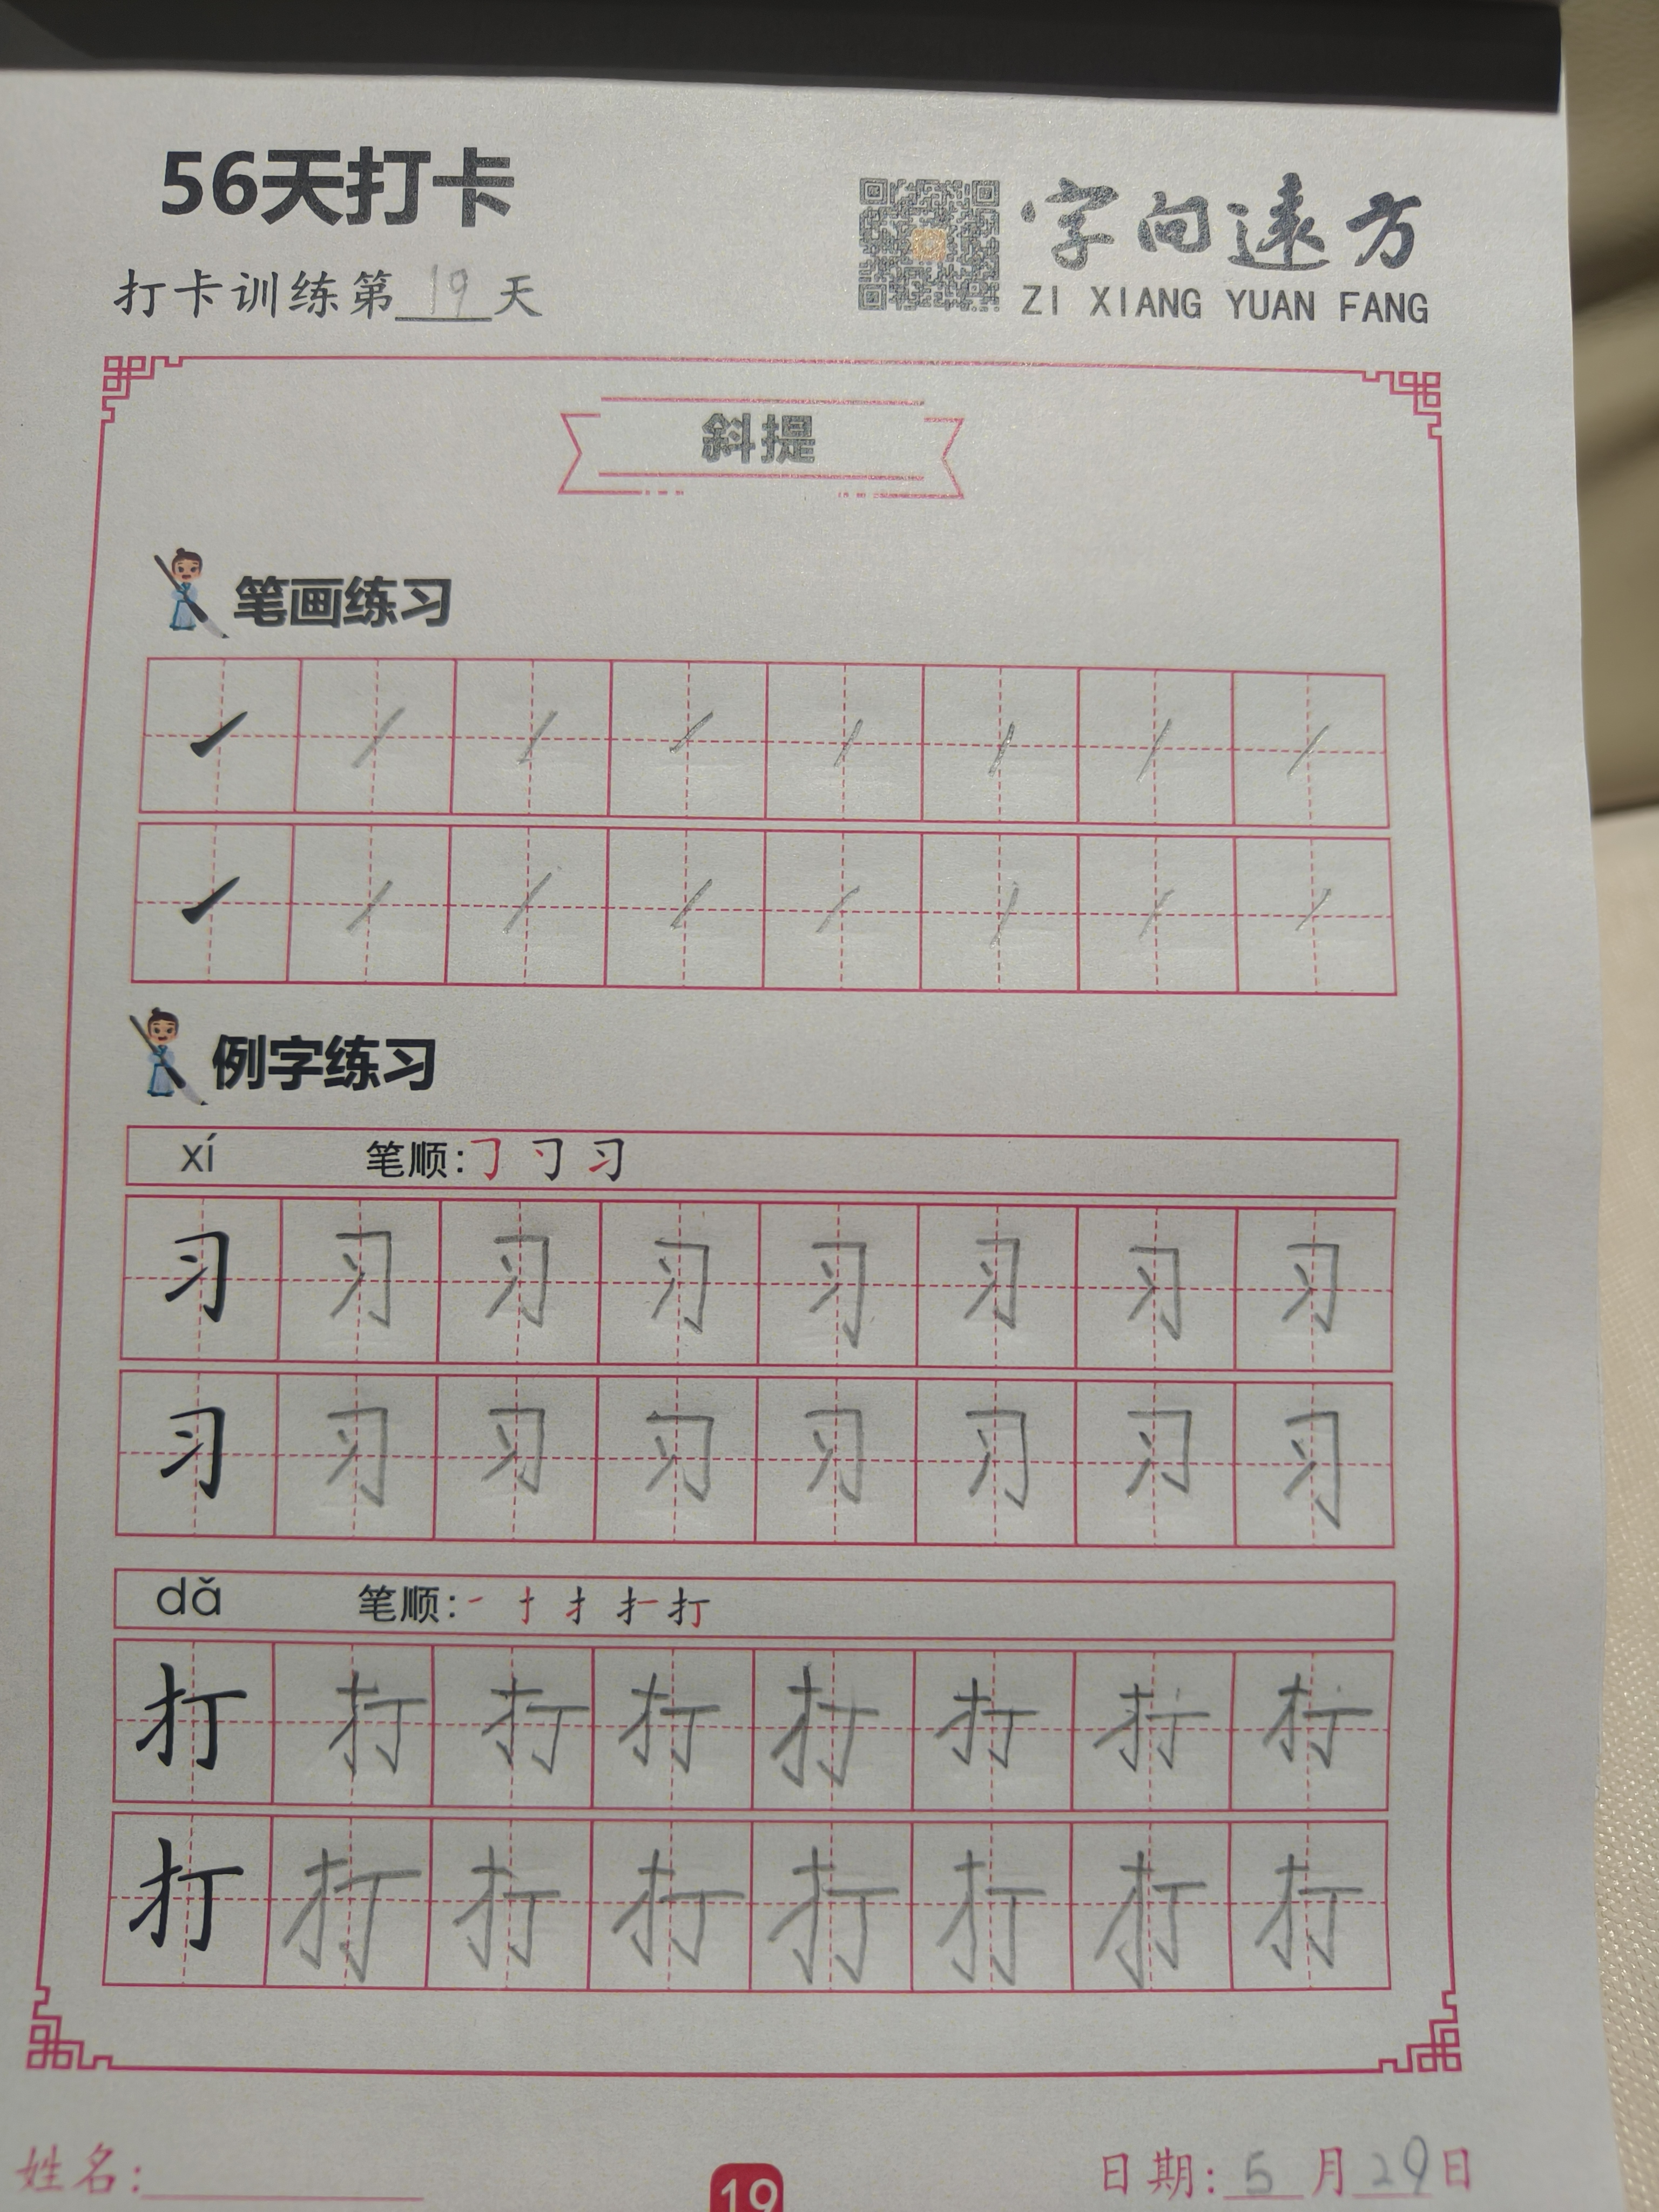 56天打卡
打卡训练第19天
字向遠方
ZI XIANG YUAN FANG
斜提
笔画练习
例字练习
xí 笔顺:㇆ 习
习 习 习 习 习 习 习 习
习 习 习 习 习 习 习 习
dǎ 笔顺:一 扌 打
打 打 打 打 打 打 打 打
打 打 打 打 打 打 打 打
姓名:
19
日期:5月29日